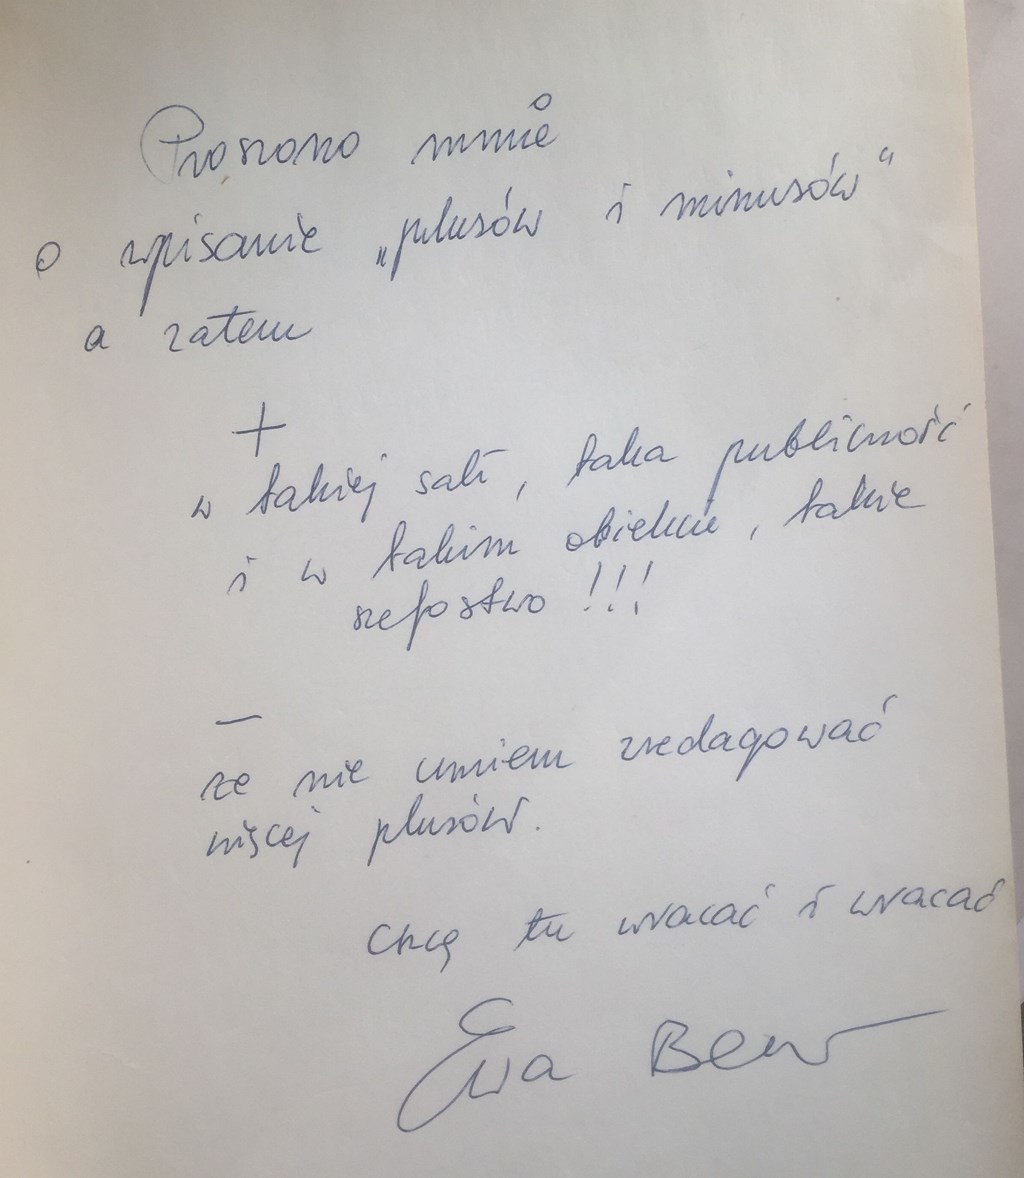 Proszono mnie
o wpisanie „plusów i minusów"
a zatem
+
w takiej sali, taka publiczność
i w takim obiekcie, takie
szefostwo !!!
—
że nie umiem zredagować
więcej plusów.
Chcę tu wracać i wracać
Ewa Bem